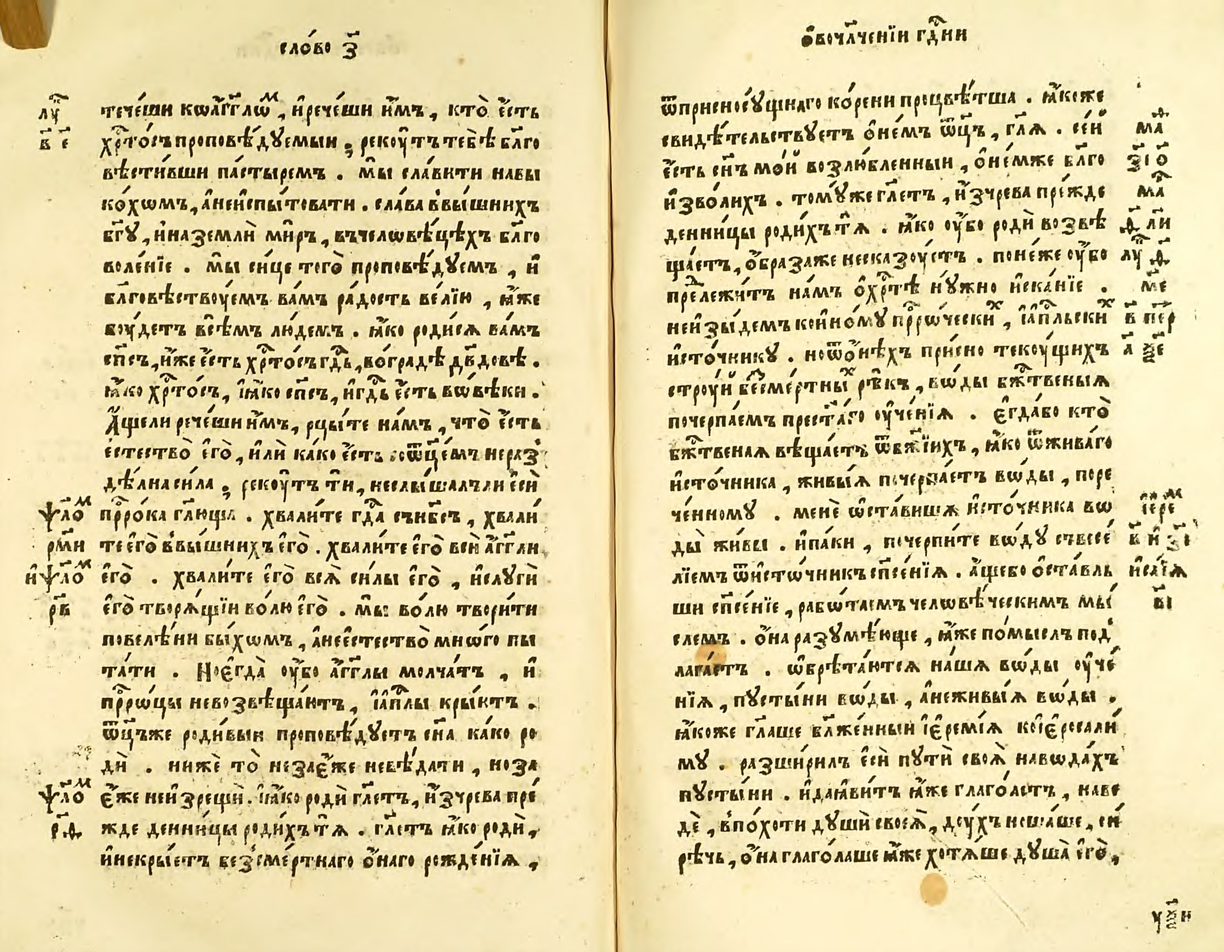 сло́во з҃
течє́ши кѡа҆́гг҃лѡⷨ, и҆речє́ши и҆̀мъ, кто̀ є҆́сть
лꙋⷦ҇
хрⷭ҇то́съ проповѣ́дꙋемыи ; рекꙋ́тъ тебѣ̀ бл҃го
в҃ є҃
вѣстивши па́стыремъ . мы̀ сла́вити навы
ко́хомъ, а҆неиспы́товати . сла́ва ввы́шнихъ
бг҃ꙋ, и҆наземлѝ ми́ръ, въчелѡвѣ́цѣхъ бл҃го
воле́нїе . мы̀ си́це того̀ проповѣ́дꙋемъ , и҆
бл҃говѣствꙋ́емъ ва́мъ ра́дость ве́лїю , ꙗ҆́же
бꙋ́детъ всѣ́мъ лю́демъ . ꙗ҆́ко роди́сѧ ва́мъ
сп҃съ, и҆́же є҆́сть хрⷭ҇то́съ гдⷭ҇ь, воградѣ̀ дв҃довѣ .
ꙗ҆́ко хрⷭ҇то́съ, ꙗ҆́ко сп҃съ, и҆гдⷭ҇ь є҆́сть вѡвѣ́ки .
А҆́щели речє́ши и҆̀мъ, рцы́те на́мъ , что̀ є҆́сть
є҆стество̀ є҆го̀ , и҆лѝ ка́ко є҆́сть сѡц҃є́мъ нераз
дѣ́лнаѧ си́ла ; рекꙋ́тъ ти, неслы́шалъли є҆сѝ
ѱало́ⷨ
прⷪ҇ро́ка гл҃юща . хвали́те гдⷭ҇а сънб҃съ , хвали́
рм҃и
те є҆го̀ ввы́шнихъ є҆го̀ . хвали́те є҆го̀ всѝ а҆́гг҃ли
и҆ѱало́ⷨ
є҆го̀ . хвали́те є҆го̀ всѧ̀ си́лы є҆го̀ , и҆слꙋгѝ
р҃в
є҆го̀ творѧ́щїи во́лю є҆го̀ . мы̀ во́лю твори́ти
повелѣ́ни бы́хомъ , а҆неестество̀ мно́го пы
та́ти . Но є҆гда̀ ᲂу҆́бо а҆́гг҃лы молча́тъ , и҆
прⷪ҇ро́цы невозвѣща́ютъ , и҆а҆пⷭ҇лы кры́ютъ .
ѻ҆ц҃ъже роди́выи проповѣ́дꙋетъ сн҃а ка́ко ро
дѝ . нижѐ то̀ неза є҆́же невѣ́дати , ноза
ѱало́ⷨ
є҆́же неи҆зрещѝ . ꙗ҆́ко родѝ гл҃етъ , и҆зчре́ва пре́
р҃ѳ
жде денни́цы роди́хъ тѧ̀ . гл҃етъ ꙗ҆́ко родѝ ,
и҆некры́етъ безсме́ртнаго ѻ҆́наго рожде́нїѧ ,
ѻ҆вочл҃че́нїи гдⷭ҇ни
ѿприсносꙋ́щнаго ко́рени процвѣ́тша . ꙗ҆́коже
свидѣ́тельствꙋетъ ѻ҆не́мъ ѻ҆ц҃ъ , гл҃ѧ . се́й
маⷴ
є҆́сть сн҃ъ мо́й возлю́бленныи , ѻ҆не́мже бл҃го
з҃і ѻ҃
и҆зво́лихъ . томꙋ́же гл҃етъ , и҆зчре́ва пре́жде
маⷴ
денни́цы роди́хъ тѧ̀ . ꙗ҆́ко ᲂу҆́бо родѝ возвѣ
ѳ҃ ли
ща́етъ , ѻ҆́бразаже неска́зꙋетъ . поне́же ᲂу҆́бо
лꙋ ѳ҃
прележи́тъ на́мъ ѻ҆хрⷭ҇тѣ̀ нꙋ́жно и҆ска́нїе .
ме
неи҆зы́демъ кои҆но́мꙋ прⷪ҇ро́ческиⷯ , и҆а҆пⷭ҇льскиⷯ
в҃ пе́р
и҆сто́чникꙋ . ноѿѻ҆нѣ́хъ при́сно текꙋ́щихъ
а҃
стрꙋ́й безсме́ртныⷯ рѣ́къ , во́ды бжⷭ҇твеныѧ
почерпа́емъ прест҃а́го ᲂу҆че́нїѧ . є҆гда́бо кто̀
бжⷭ҇твенаѧ вѣща́етъ ѿбж҃їихъ , ꙗ҆́ко ѿжива́го
и҆сто́чника , живы́ѧ почерпа́етъ во́ды , поре
че́нномꙋ . менѐ ѡ҆ста́вишѧ и҆сто́чника во
і҆єреⷨ
ды̀ жи́вы . и҆па́ки , почерпи́те во́дꙋ свесе́
в҃ и҆ з҃і
лїемъ ѿи҆сто́чникъ сп҃се́нїѧ . а҆́щебо ѻ҆ста́вль
и҆са́їѧ
ши сп҃се́нїе , рабо́таемъ человѣ́ческимъ мы́
в҃і
слемъ . ѻ҆на разꙋмѣ́юще , ꙗ҆́же по́мыслъ под
лага́етъ . ѡ҆брѣта́ютсѧ на́шѧ во́ды ᲂу҆че́
нїѧ , пꙋсты́ни во́ды , а҆неживы́ѧ во́ды .
ꙗ҆́коже гл҃аше бл҃же́нныи і҆єремі́ѧ коі҆єросали́
мꙋ . разшири́лъ є҆сѝ пꙋтѝ своѧ̀ наво́дахъ
пꙋсты́ни . и҆да ꙗ҆ви́тъ ꙗ҆́же глаго́летъ , наве
дѐ , впо́хоти дꙋшѝ своеѧ̀ , дꙋ́хъ ноша́ше , си
рѣ́чь , ѻ҆на глаго́лаше ꙗ҆́же хотѧ́ше дꙋша̀ є҆го̀ ,